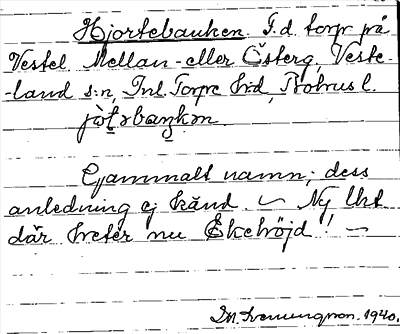 Hjortebacken. F.d. torp på
Vestel Mellan- eller Österg, Veste-
-land s:n, Inl. Torpe h:d, Bohus l.
Gammalt namn; dess
anledning ej känd. – Ny lht
där heter nu Ekehöjd! –
1940.